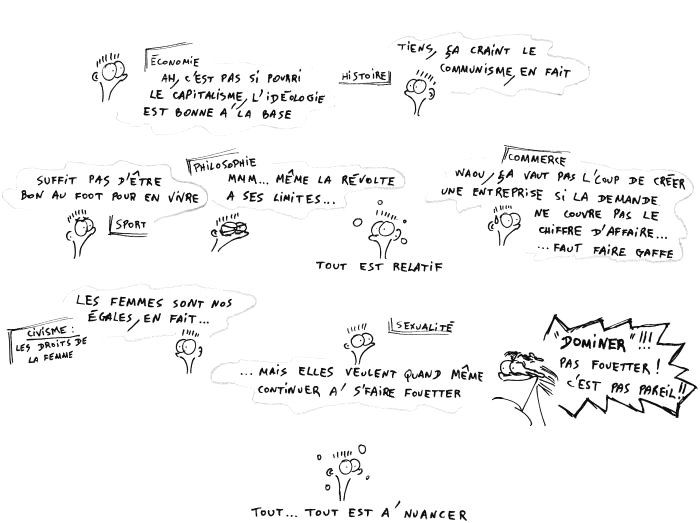 ÉCONOMIE
AH, C'EST PAS SI POURRI
LE CAPITALISME, L'IDÉOLOGIE
EST BONNE A' LA BASE
HISTOIRE
TIENS, ÇA CRAINT LE
COMMUNISME, EN FAIT
SUFFIT PAS D'ÊTRE
BON AU FOOT POUR EN VIVRE
SPORT
PHILOSOPHIE
MMM... MÊME LA RÉVOLTE
A SES LIMITES...
TOUT EST RELATIF
COMMERCE
WAOU, ÇA VAUT PAS L'COUP DE CRÉER
UNE ENTREPRISE SI LA DEMANDE
NE COUVRE PAS LE
CHIFFRE D'AFFAIRE...
...FAUT FAIRE GAFFE
CIVISME :
LES DROITS DE
LA FEMME
LES FEMMES SONT NOS
ÉGALES, EN FAIT...
SEXUALITÉ
... MAIS ELLES VEULENT QUAND MÊME
CONTINUER A' S'FAIRE FOUETTER
"DOMINER" !!!
PAS FOUETTER !
C'EST PAS PAREIL !!
TOUT... TOUT EST A' NUANCER